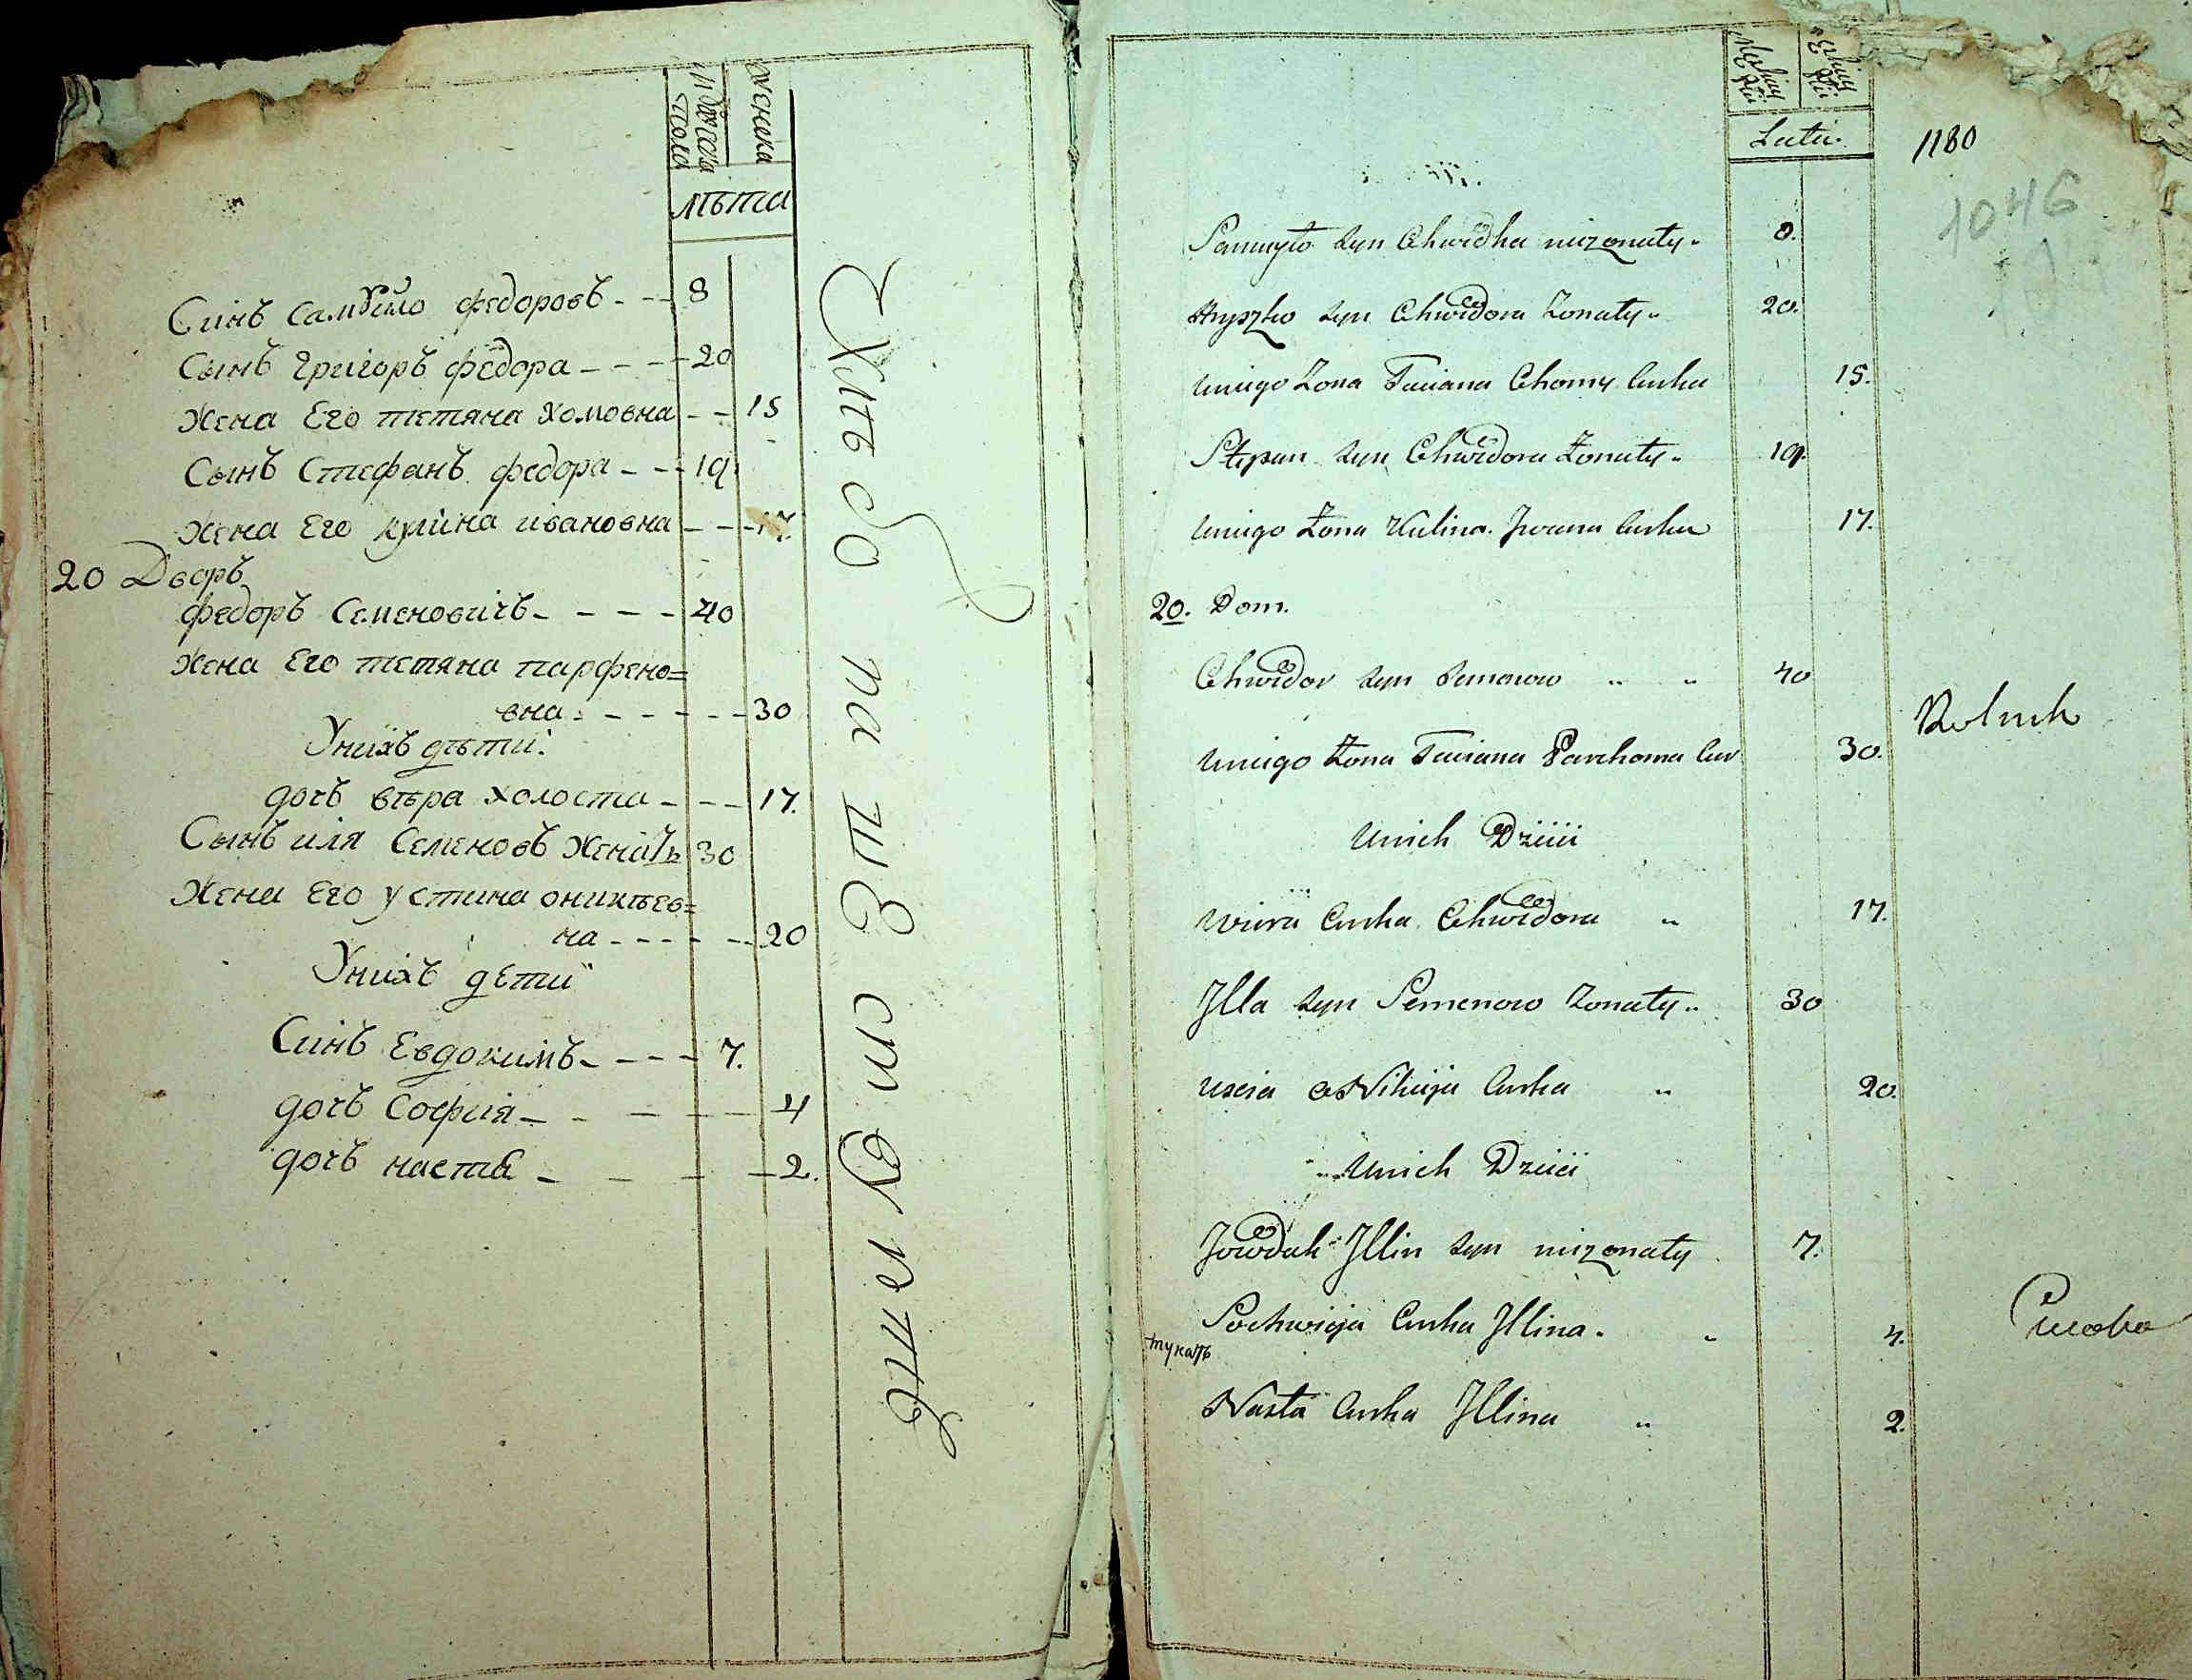 Мужеска
пола
женска
лѣта
Синъ Самуйло федоровъ - - 8
Сынъ григоръ федора - - - 20
Жена Его тетяна хомовна - - 15
Сынъ Стефанъ федора - - 19
Жена Его кулина ивановна - - - 17.
20 Дворъ
федоръ Семеновичъ - - - - 40
Жена Его тетяна парфено=
вна - - - - - - 30
Унихъ дѣти:
дочъ вѣра холоста - - - 17.
Сынъ иля Семеновъ женатъ 30
Жена Его устина оникѣев=
на - - - - - 20
Унихъ дети
Синъ Евдокимъ - - - - 7.
дочъ София - - - - - 4
дочъ настя - - - - 2.
1180
1046
Lata.
Samuyło syn Chwedka niezonaty " 8.
Hryszko syn Chwedora Zonaty " 20.
Uniego Zona Taciana Chomy Curka 15.
Stepan syn Chwedora Zonaty " 19.
Uniego Zona Kulina Jwana Curka 17.
20. Dom.
Chwedor syn Semenow " " 40
Rolnik
Uniego Zona Taciana Parchoma Cur 30.
Unich Dzieci
Wiera Curka Chwedora " 17.
Jlla syn Semenow Zonaty " 30
Uscia oNikieja Curka " 20.
Unich Dzieci
Jowduk Jllin syn niezonaty 7.
Sochwieja Curka Jllina. " 4.
Nasta Curka Jllina " 2.